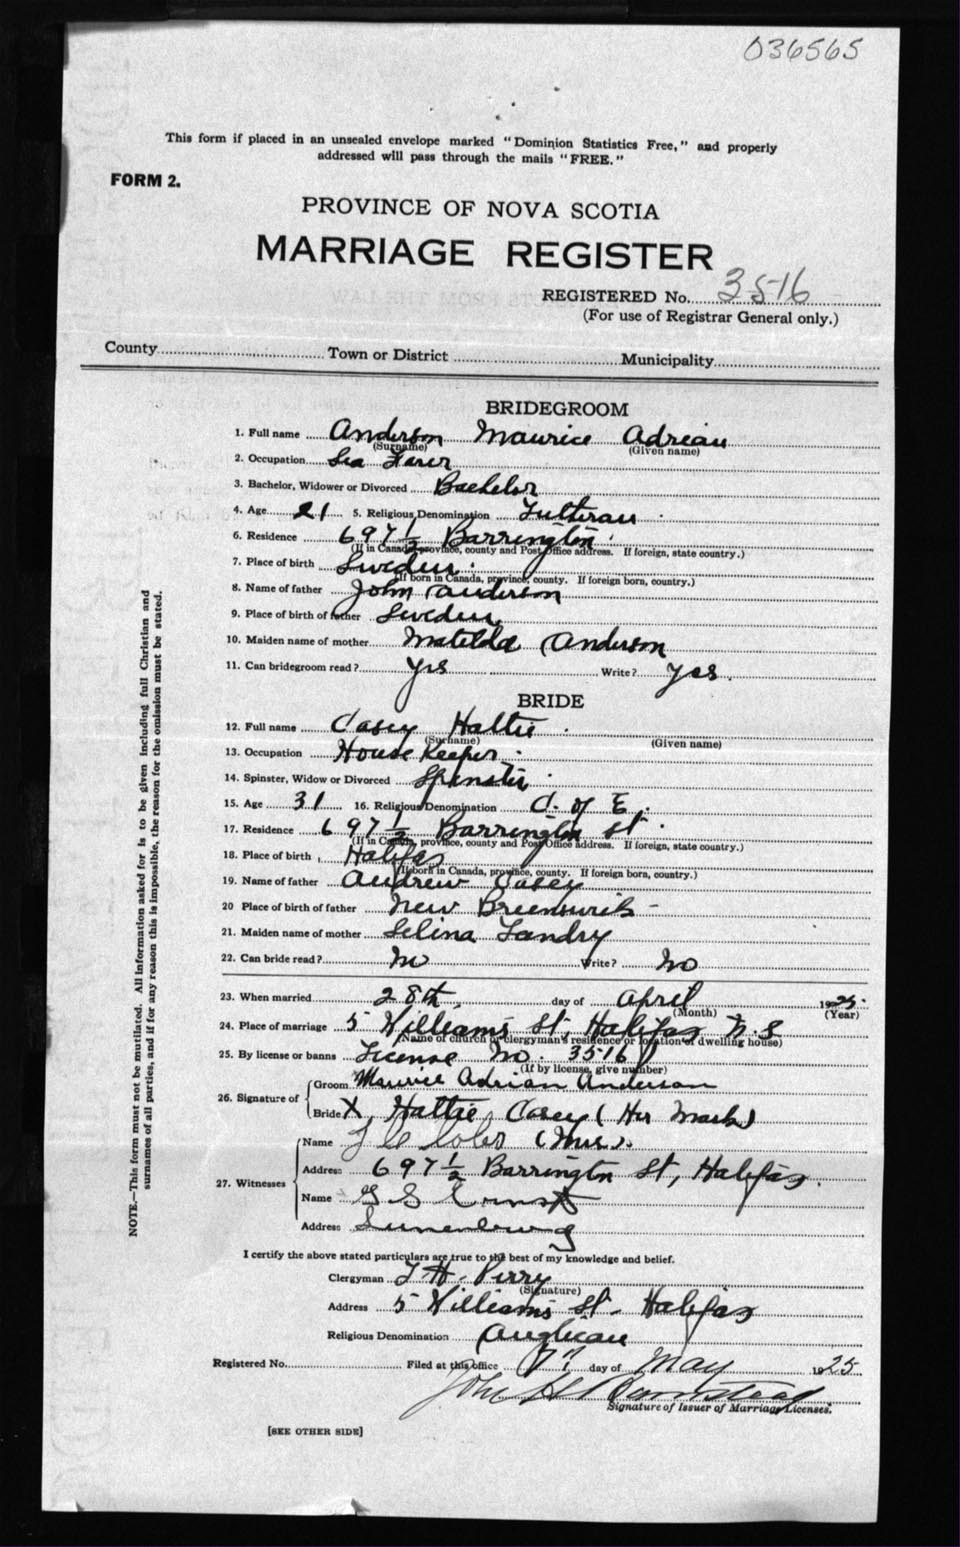 036565
This form if placed in an unsealed envelope marked "Dominion Statistics Free," and properly
addressed will pass through the mails "FREE."
FORM 2.
PROVINCE OF NOVA SCOTIA
MARRIAGE REGISTER
REGISTERED No. 3516
(For use of Registrar General only.)
County Town or District Municipality
BRIDEGROOM
1. Full name Anderson Maurice Adrian
(Surname) (Given name)
2. Occupation Sea Farer
3. Bachelor, Widower or Divorced Bachelor
4. Age 21 5. Religious Denomination Lutheran
6. Residence 697½ Barrington
(If in Canada, province, county and Post Office address. If foreign, state country.)
7. Place of birth Sweden
(If born in Canada, province, county. If foreign born, country.)
8. Name of father John Anderson
9. Place of birth of father Sweden
10. Maiden name of mother Matilda Anderson
11. Can bridegroom read? Yes Write? Yes.
BRIDE
12. Full name Casey Hattie
(Surname) (Given name)
13. Occupation House Keeper
14. Spinster, Widow or Divorced Spinster
15. Age 31 16. Religious Denomination C. of E.
17. Residence 697½ Barrington St
(If in Canada, province, county and Post Office address. If foreign, state country.)
18. Place of birth Halifax
(If born in Canada, province, county. If foreign born, country.)
19. Name of father Andrew Casey
20 Place of birth of father New Brunswick
21. Maiden name of mother Selina Landry
22. Can bride read? No Write? No
23. When married 28th day of April 1925
(Month) (Year)
24. Place of marriage 5 Williams St, Halifax N.S
(Name of church or clergyman's residence or location of dwelling house)
25. By license or banns License No. 3516
(If by license, give number)
26. Signature of
Groom Maurice Adrian Anderson
Bride X Hattie Casey (Her Mark)
27. Witnesses
Name (Mrs).
Address 697½ Barrington St, Halifax.
Name G S Ernst
Address Lunenburg
I certify the above stated particulars are true to the best of my knowledge and belief.
Clergyman T. H. Perry
(Signature)
Address 5 Williams St - Halifax
Religious Denomination Anglican
Registered No. Filed at this office day of May 1925
John H
Signature of Issuer of Marriage Licenses.
[SEE OTHER SIDE]
NOTE.—This form must not be mutilated. All information asked for is to be given including full Christian and
surnames of all parties, and if for any reason this is impossible, the reason for the omission must be stated.